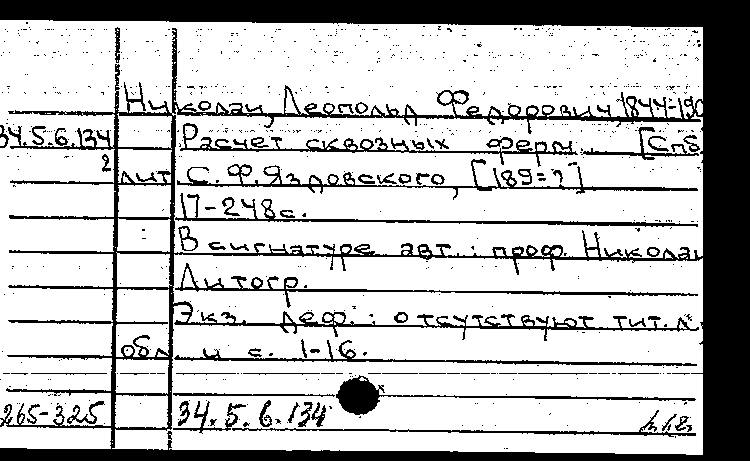 Николаи, Леопольд Федорович, 1844-190
34.5.6.134 Расчет сквозных ферм... [Спб
2 лит. С.Ф.Яздовского, [189=?]
17-248с.
В сигнатуре авт.: проф. Николаи
Литогр.
Экз. деф.: отсутствуют тит.л,
обл. и с. 1-16.
265-325 34.5.6.134